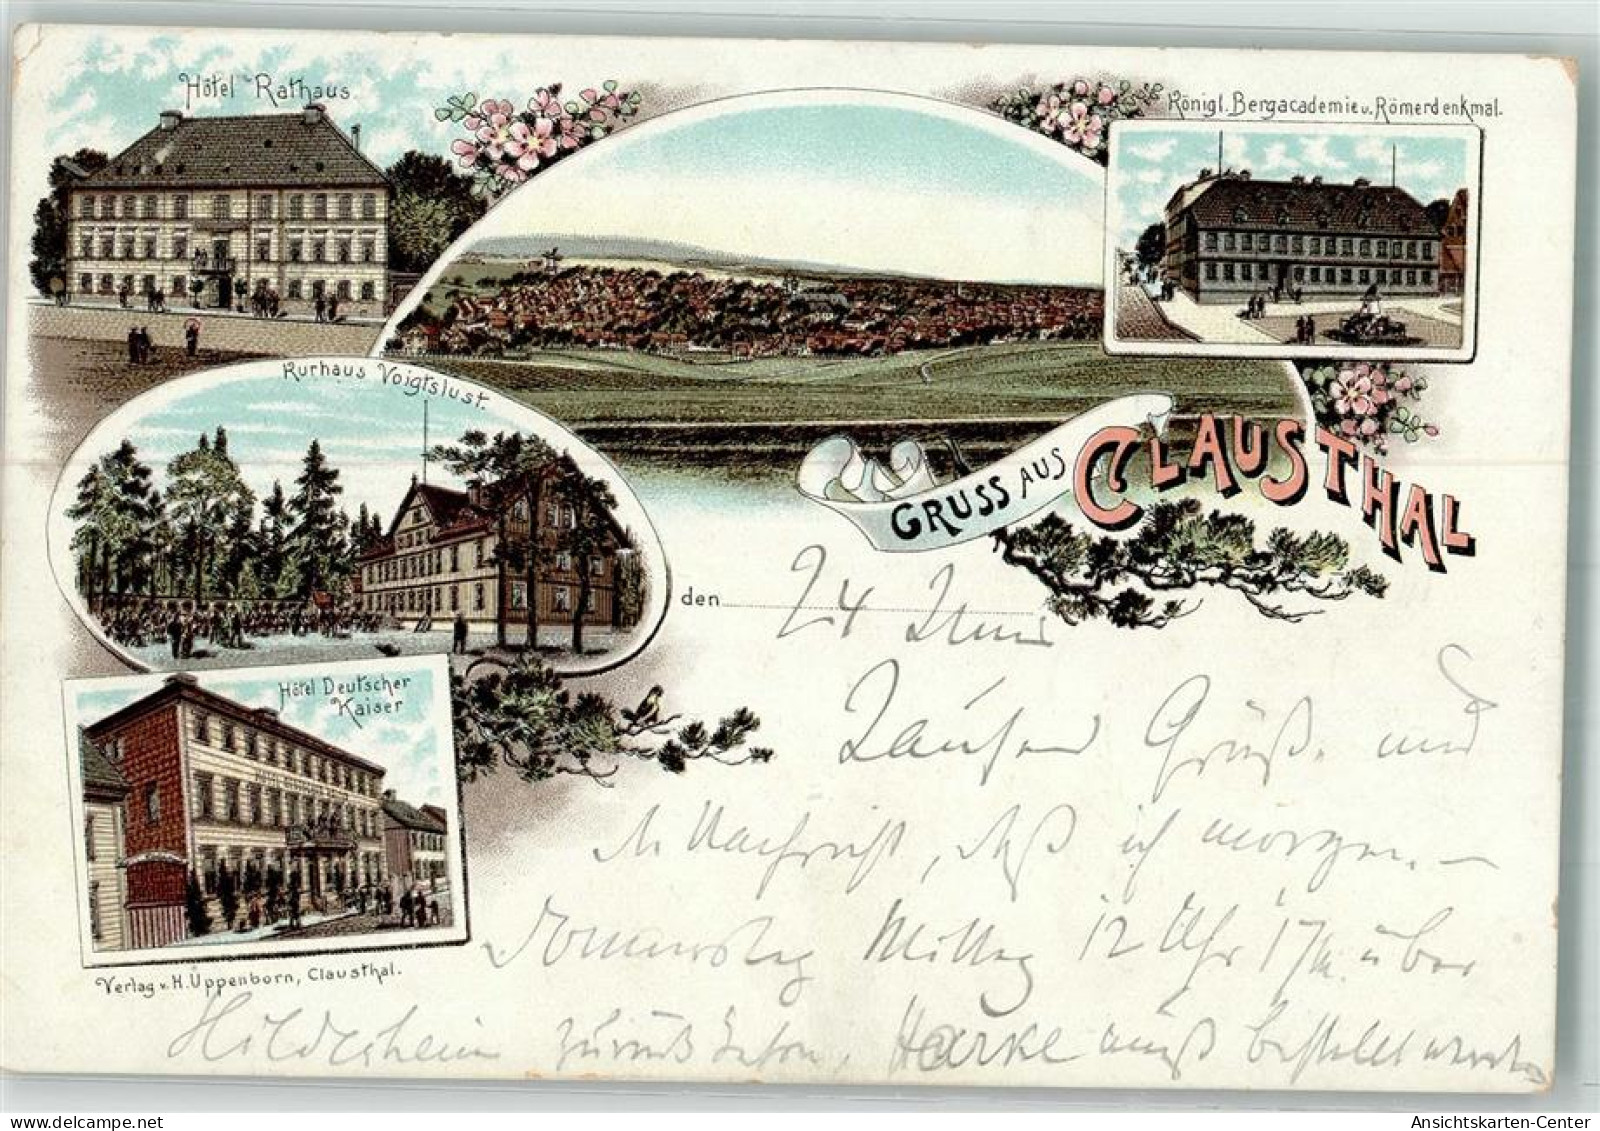 Hôtel Rathaus
Königl. Bergacademie u. Römerdenkmal.
Kurhaus Voigtslust.
GRUSS AUS CLAUSTHAL
Hôtel Deutscher
Kaiser
den 24 Juni
Tausend Grüße und
Nachricht, daß ich morgen
Donnerstag Mittag 12 Uhr 17 M. über
Hildesheim
Verlag v. H. Uppenborn, Clausthal.
Ansichtskarten-Center